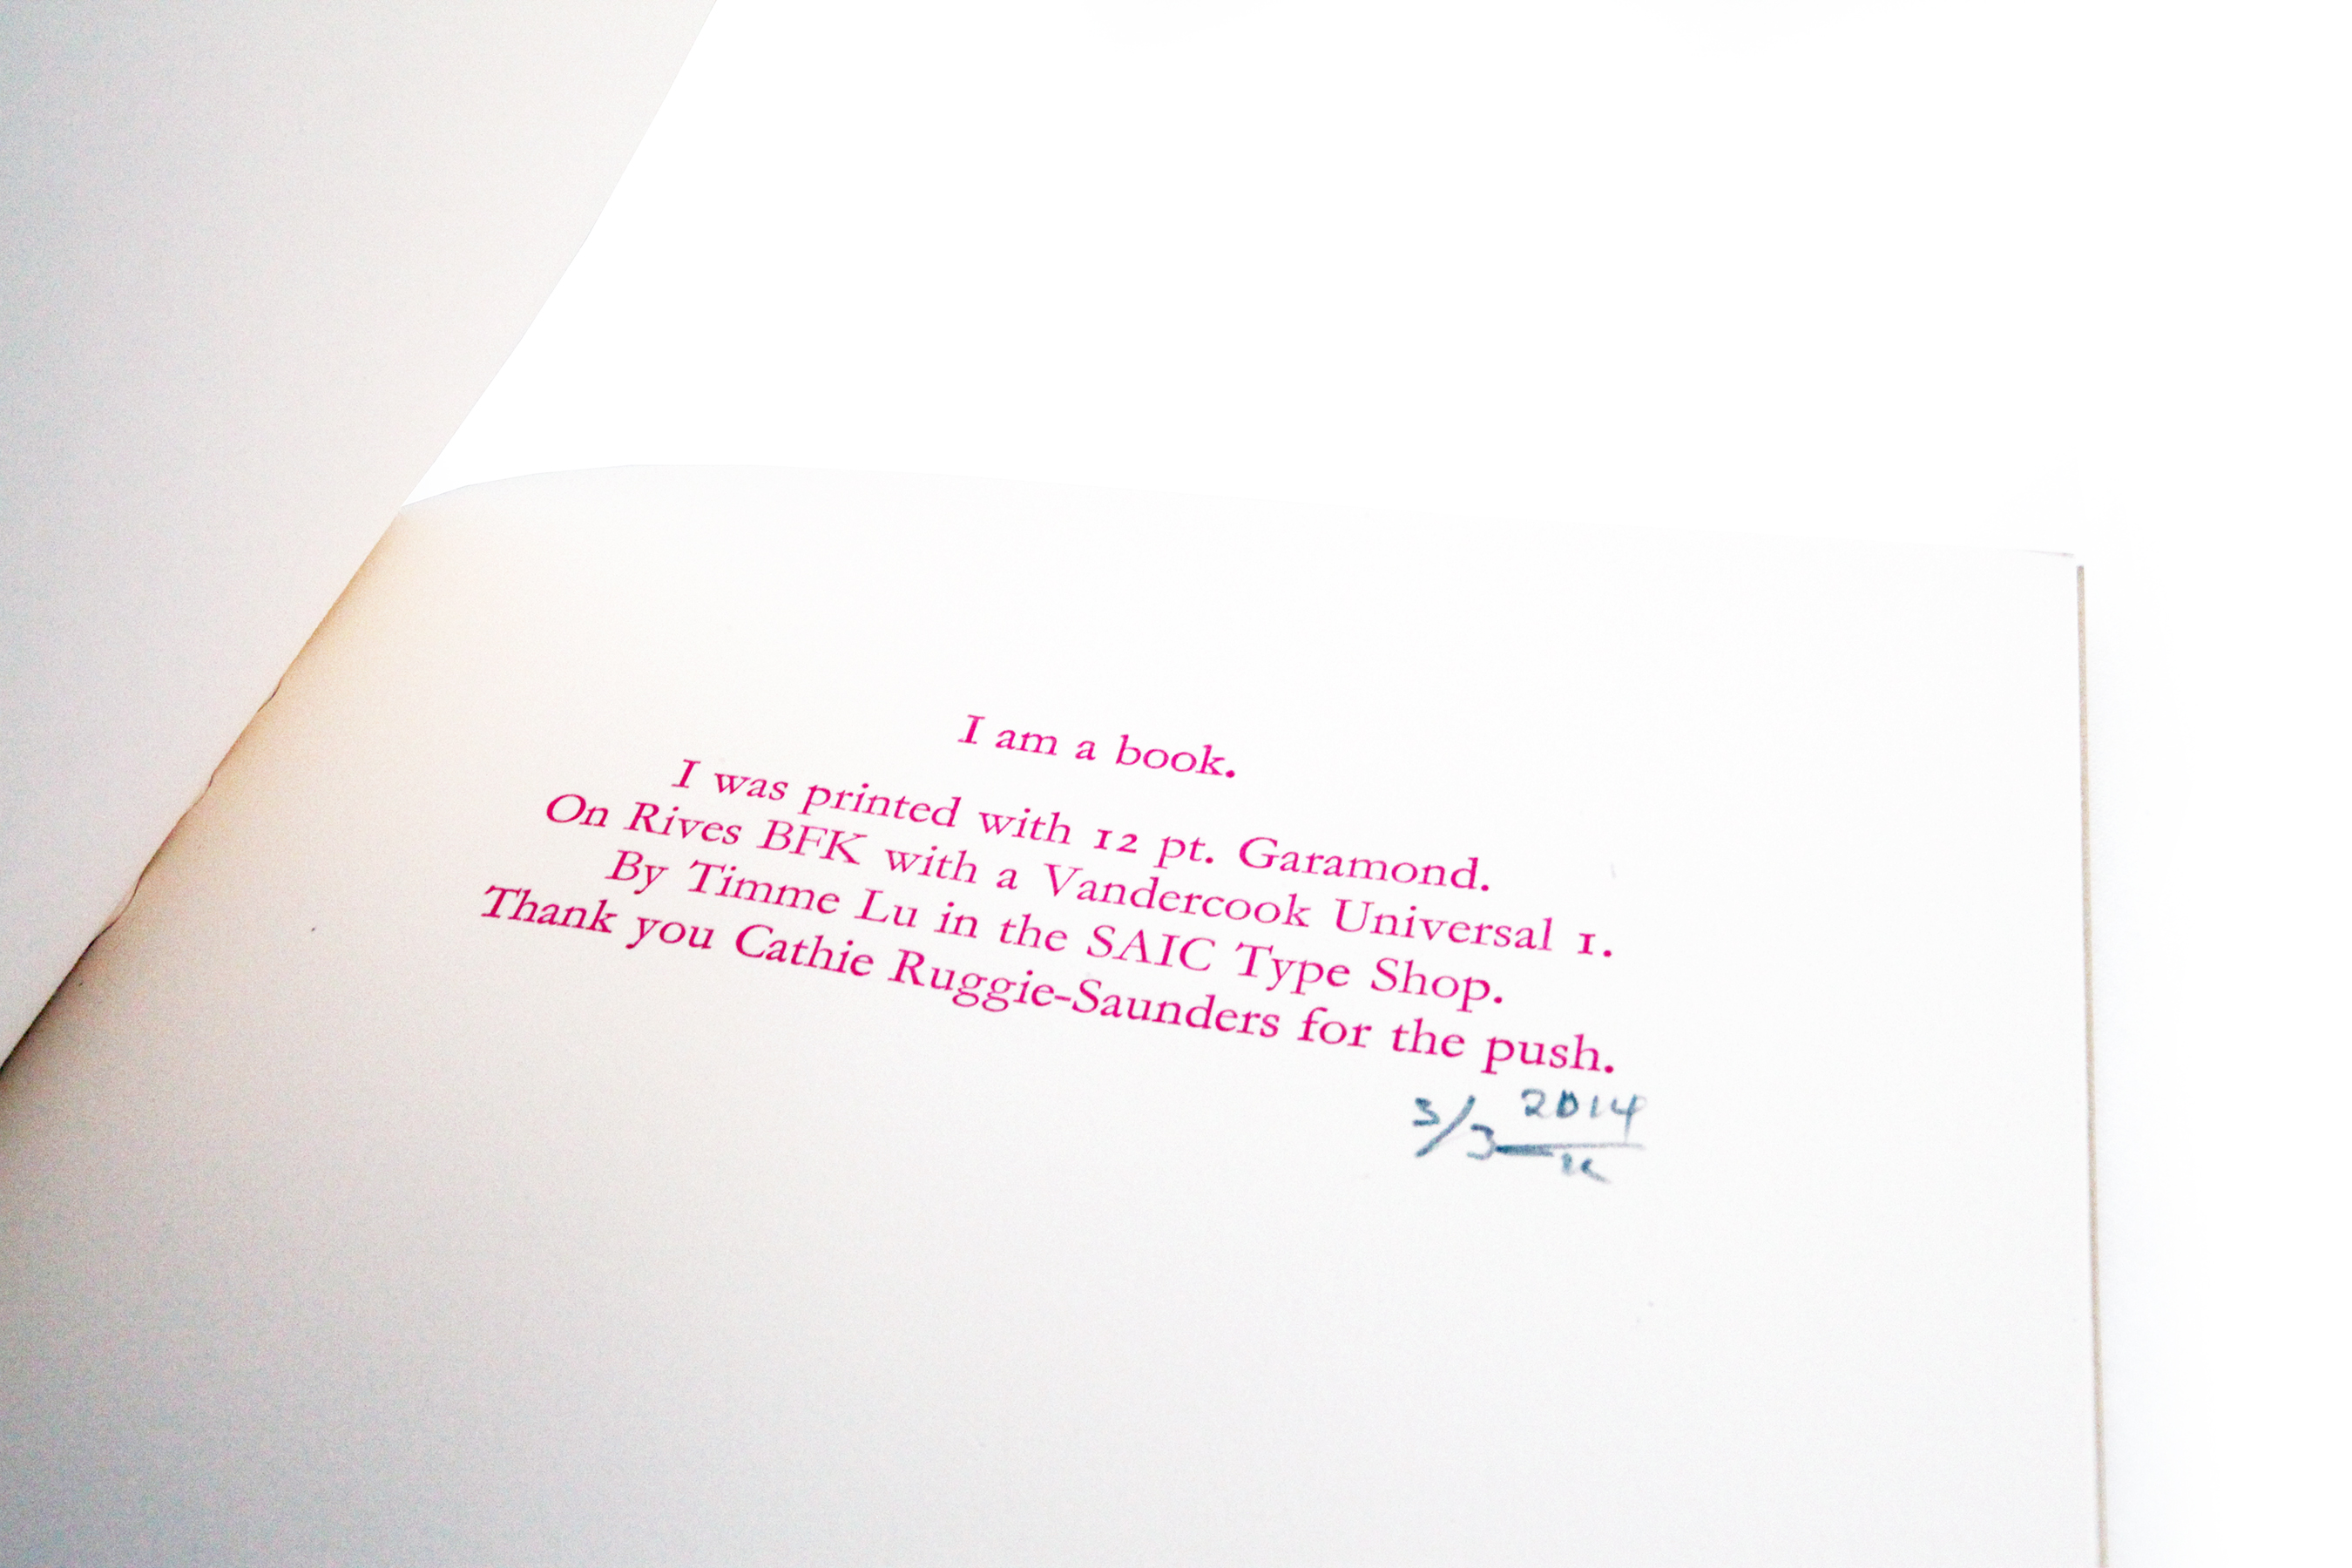 I am a book.
I was printed with 12 pt. Garamond.
On Rives BFK with a Vandercook Universal 1.
By Timme Lu in the SAIC Type Shop.
Thank you Cathie Ruggie-Saunders for the push.
3/3 2014